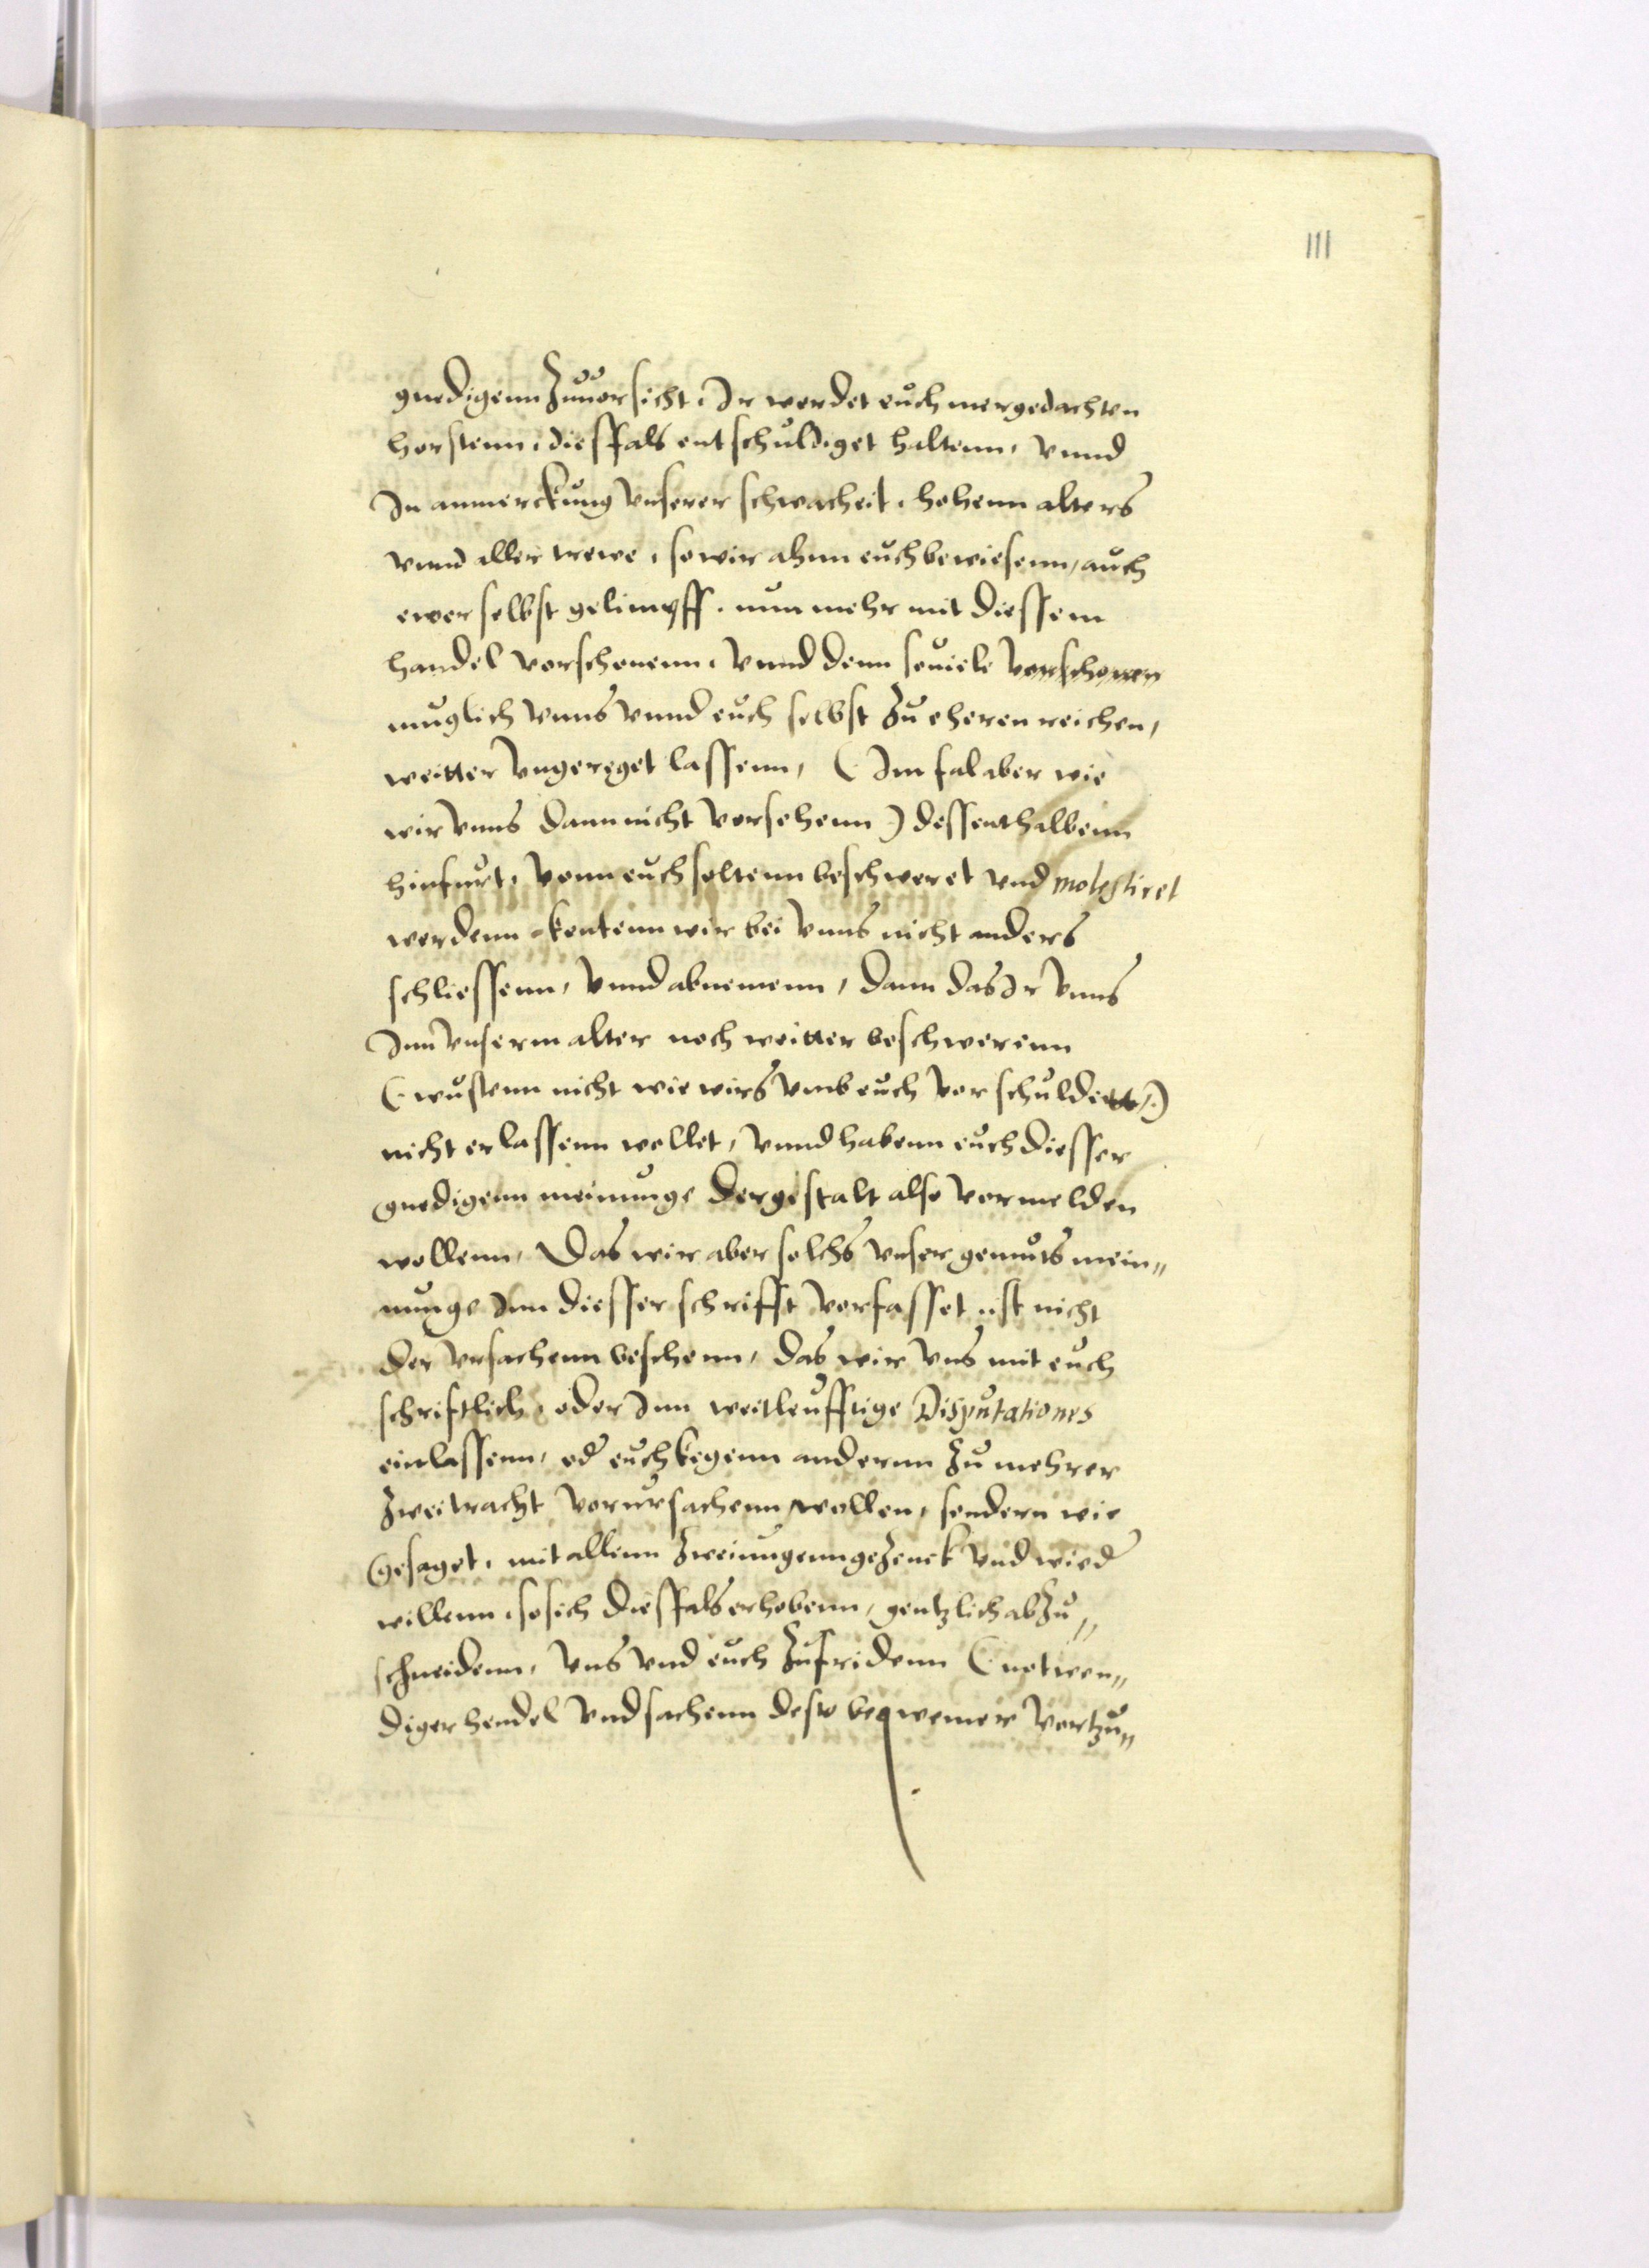 111
gnedigenn Zuuorsicht, Ir werdet euch mergedachten
horstenn, diesfals entschuldiget haltenn, vnnd
In anmerckung vnserer schwacheit, hohenn alters
vnnd aller trewe, so wir ahnn euch bewiesenn, auch
ewer selbst gelimpff, nun mehr mit diessem
handel vorschonenn, vnnd denn souiele vorschonen
muglich vnns vnnd euch selbst zu eheren reichen,
weitter vngereget lassenn, (Im fal aber wie
wir vnns dann nicht vorsehenn) dessenthalbenn
hinfurt, vonn euch soltenn beschweret vnd molestiret
werdenn kontenn wir bei vnns nicht anders
schliessenn, vnnd abnemenn, dann das Ir vnns
Inn vnserm alter noch weitter beschwerenn
(wustenn nicht wie wirs vmb euch vorschuldett)
nicht erlassenn wollet, vnnd habenn euch diesser
gnedigenn meinunge dergestalt also vormelden
wollenn, Das wir aber solchs vnser gemuts mein„
nunge Inn diesser schrifft vorfasset ist nicht
der vrsachenn beschenn, das wir vns mit euch
schriftlich, oder Inn weitleufftige Disputationes
einlassenn, od euch kegenn andernn zu mehrer
zweitracht vorursachenn wollen, sondern wie
gesaget, mit allenn zweiungenn gezenck vnd wied
willenn, so sich diesfals erhobenn, gentzlich abzu„
schneidenn, vns vnd euch zufridenn (notwen„
diger hendel vnd sachenn desto beqwemer vortzu„